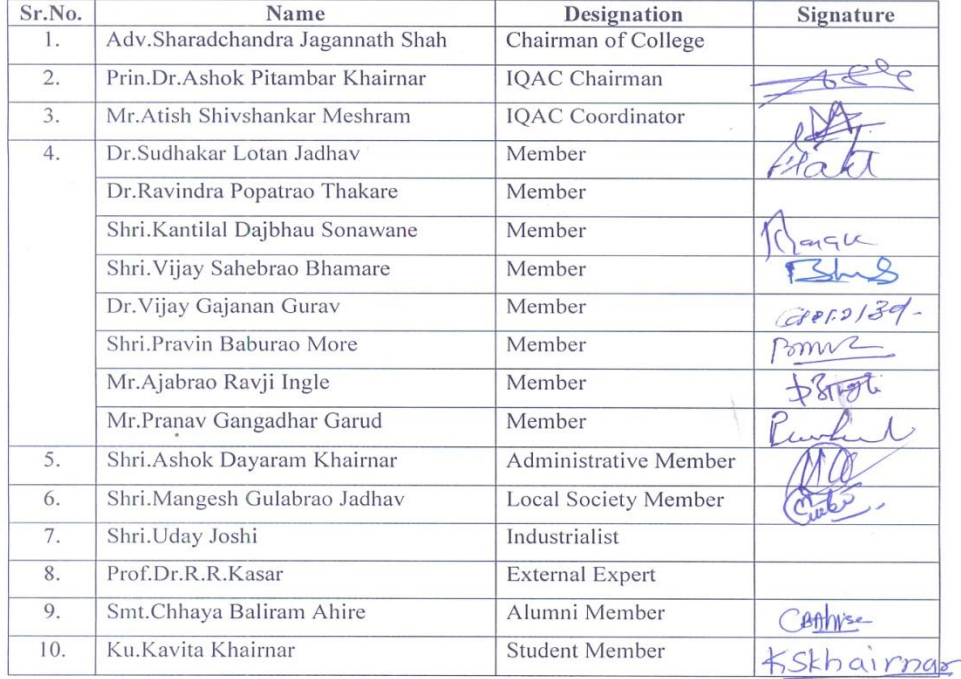 Sr.No. Name Designation Signature
1. Adv.Sharadchandra Jagannath Shah Chairman of College
2. Prin.Dr.Ashok Pitambar Khairnar IQAC Chairman
3. Mr.Atish Shivshankar Meshram IQAC Coordinator
4. Dr.Sudhakar Lotan Jadhav Member
Dr.Ravindra Popatrao Thakare Member
Shri.Kantilal Dajbhau Sonawane Member
Shri.Vijay Sahebrao Bhamare Member
Dr.Vijay Gajanan Gurav Member
Shri.Pravin Baburao More Member
Mr.Ajabrao Ravji Ingle Member
Mr.Pranav Gangadhar Garud Member
5. Shri.Ashok Dayaram Khairnar Administrative Member
6. Shri.Mangesh Gulabrao Jadhav Local Society Member
7. Shri.Uday Joshi Industrialist
8. Prof.Dr.R.R.Kasar External Expert
9. Smt.Chhaya Baliram Ahire Alumni Member CBAhire
10. Ku.Kavita Khairnar Student Member KSkhairnar